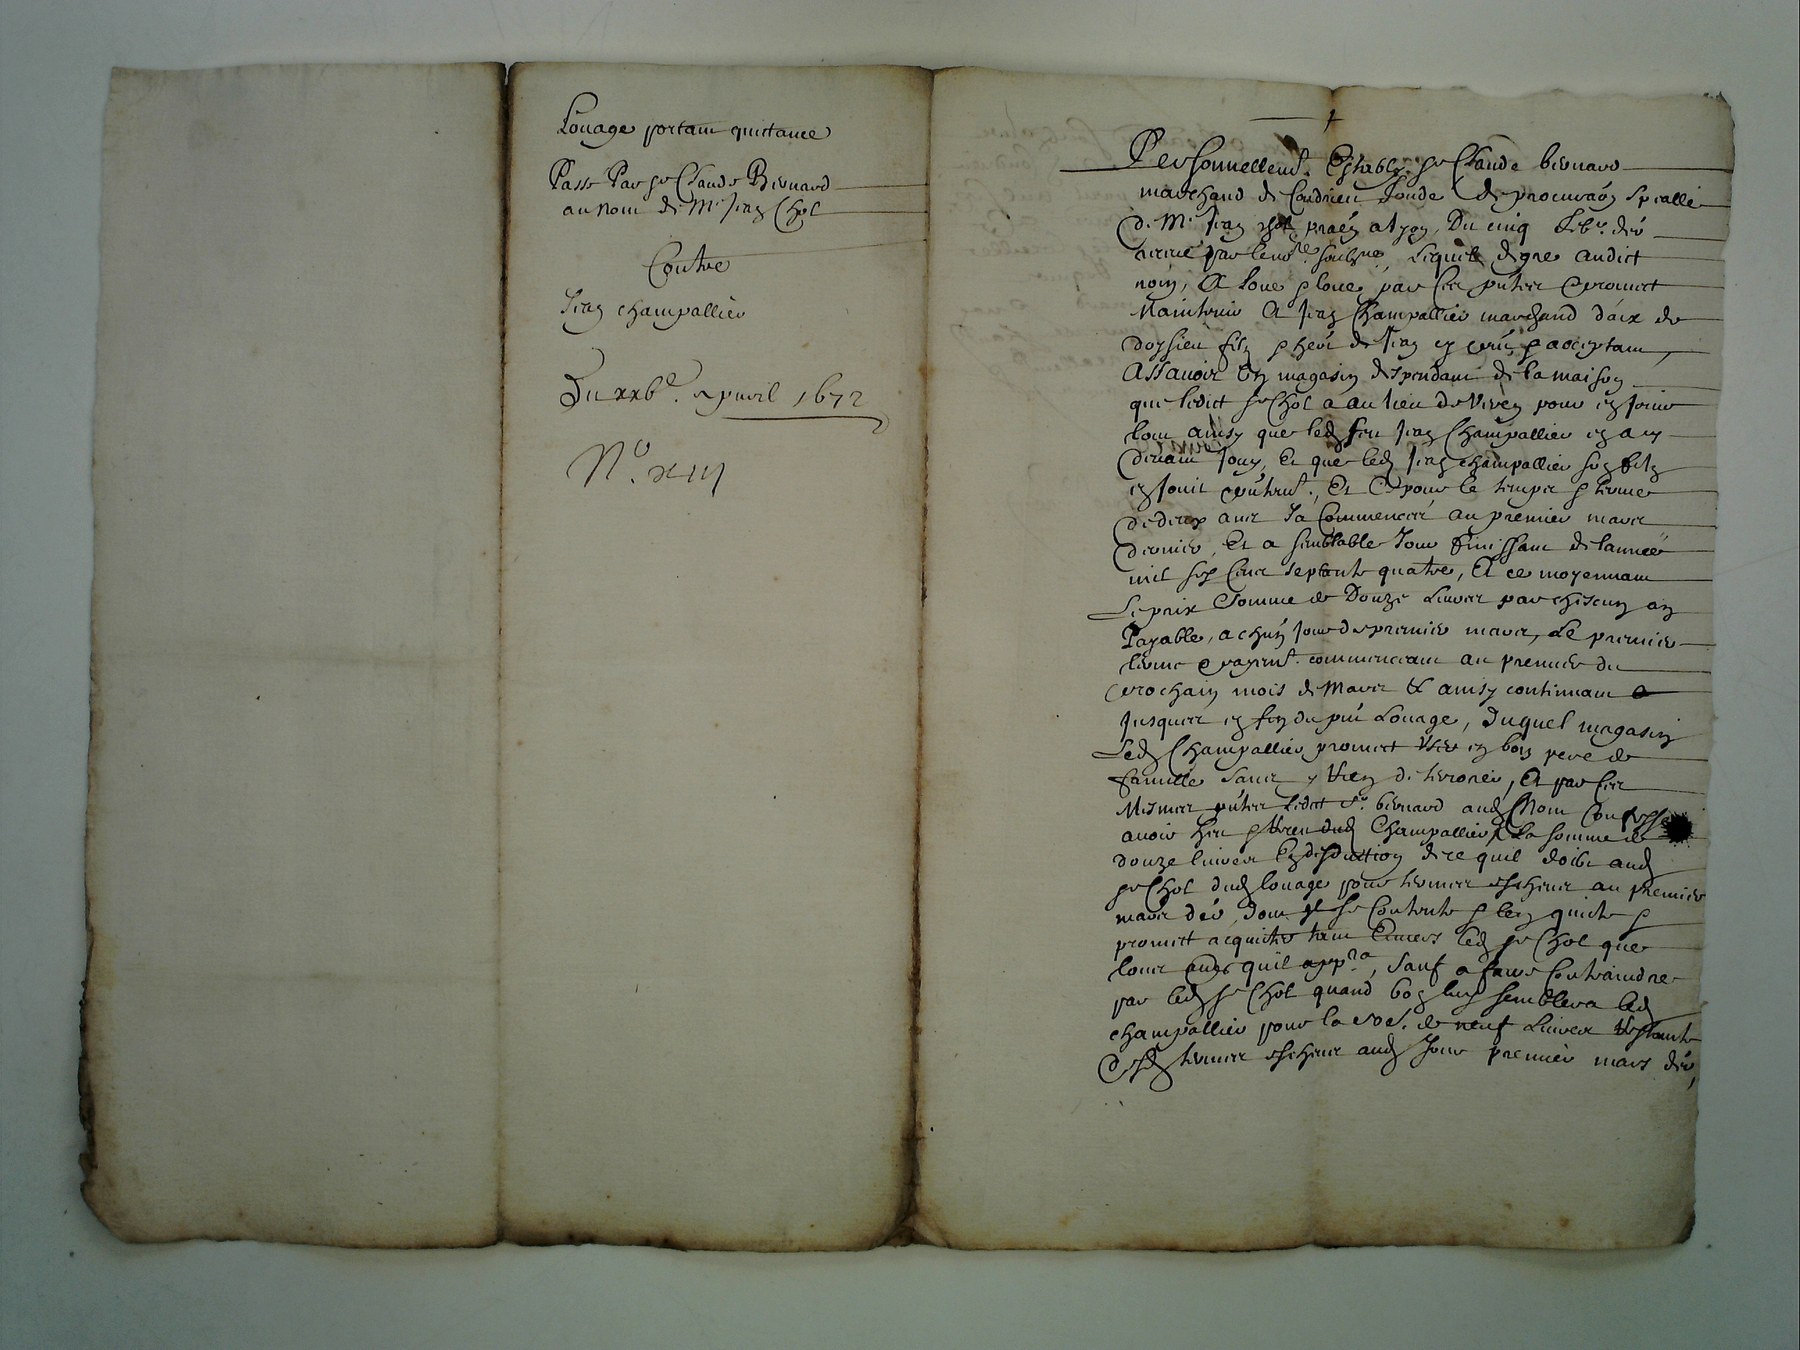 Louage portant quictance
Passe Par sr Claude Bernard
au nom de Mr Jean Chol
Contre
Jean champallier
Du xxbe. apvril 1672
No. xiii
Personnellemt. Estably sr Claude bernard
marchand de Condrieu fondé de procuraon specialle
de Mr Jean Chol du cinq der
receue par le nore. soubzné, lequel de gré audict
nom, A loué & loue par ces pntes promet
Maintenir A Jean Champallier marchand
filz & heoir de Jean pnt & acceptant,
Assavoir Un magasin despendant de la maison
que ledict sr Chol a au lieu de pour en jouir
tout ainsy que led feu Jean Champallier en a cy
devant jouy, Et que led Jean champallier son filz
en jouit pntemt., Et Ce pour le temps & terme
de deux ans Ja Commencés au premier mars
dernier, Et a semblable Jour finissant de lannée
mil six cens septante quatre, Et ce moyennant
Le prix & somme de Douze Livres par chescun an
Payable, a chun jour de premier mars, Le premier
terme & payemt. commencant au premier du
prochain mois de Mars & ainsy continuant
Jusques en fin du pnt Louage, Duquel magasin
Led Champallier promet User en bon pere de
famille sans y rien deteriorer, Et par ces
Mesmes pntes ledict sr. bernard aud Nom Confesse
avoir heu & receu dud Champallier, La somme de
douze livres En desduction de ce quil doibt aud
sr Chol dud louage pour termes escheus au premier
mars der, dont Il se Contente & len quicte &
promet acquicter tant Envers led sr Chol que
tous autres quil appra, sauf a faire Contraindre
par led sr Chol quand bon luy semblera led
champallier pour la de neuf Livres restante
desd termes escheus aud Jour premier mars der,